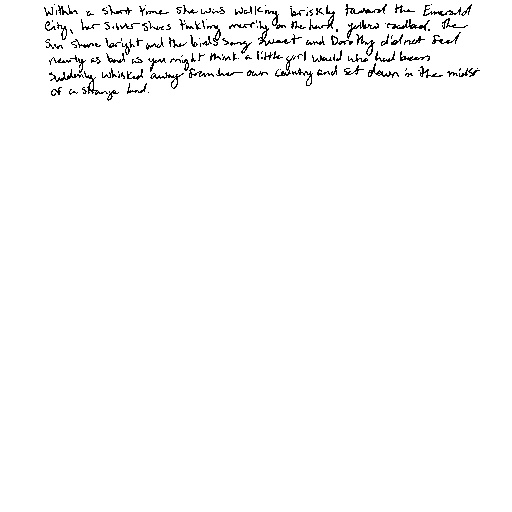 Within a short time she was walking briskly toward the Emerald
City, her Silver Shoes tinkling merrily on the hard, yellow roadbed. The
sun shone bright and the birds sang sweet and Dorothy did not feel
nearly as bad as you might think a little girl would who had been
suddenly whisked away from her own country and set down in the midst
of a strange land.